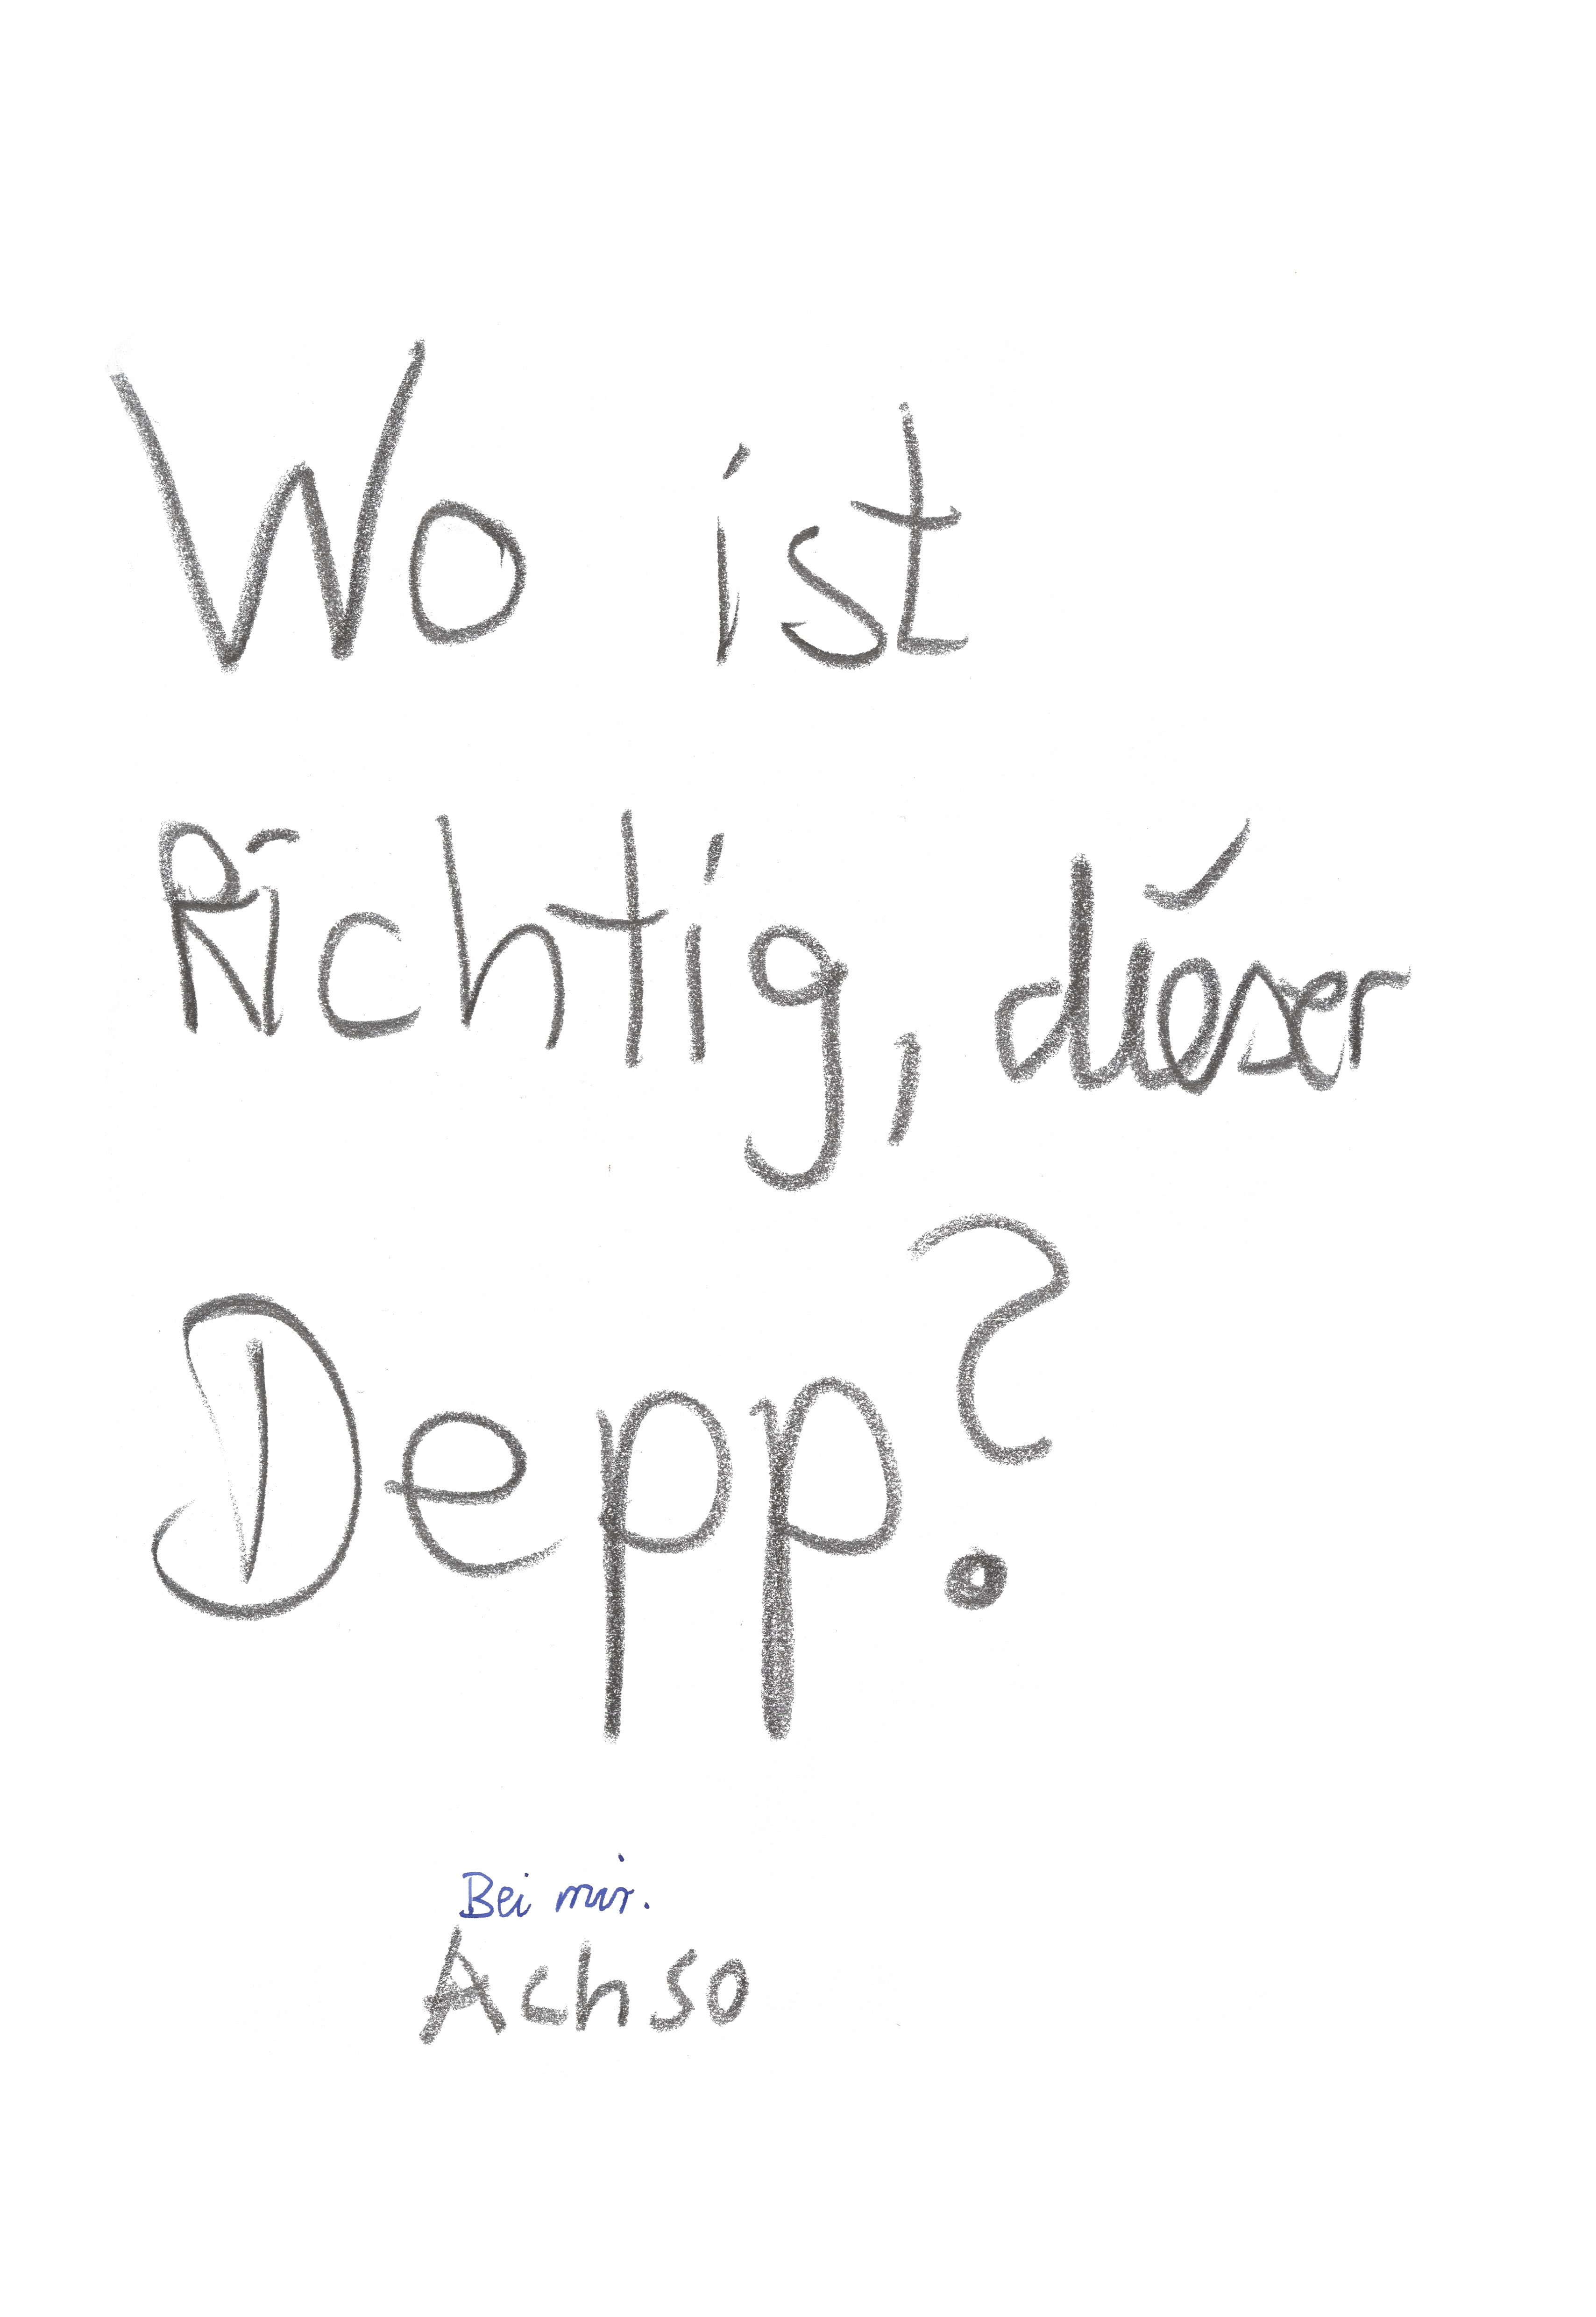 Wo ist
Richtig, dieser
Depp?
Bei mir.
Achso